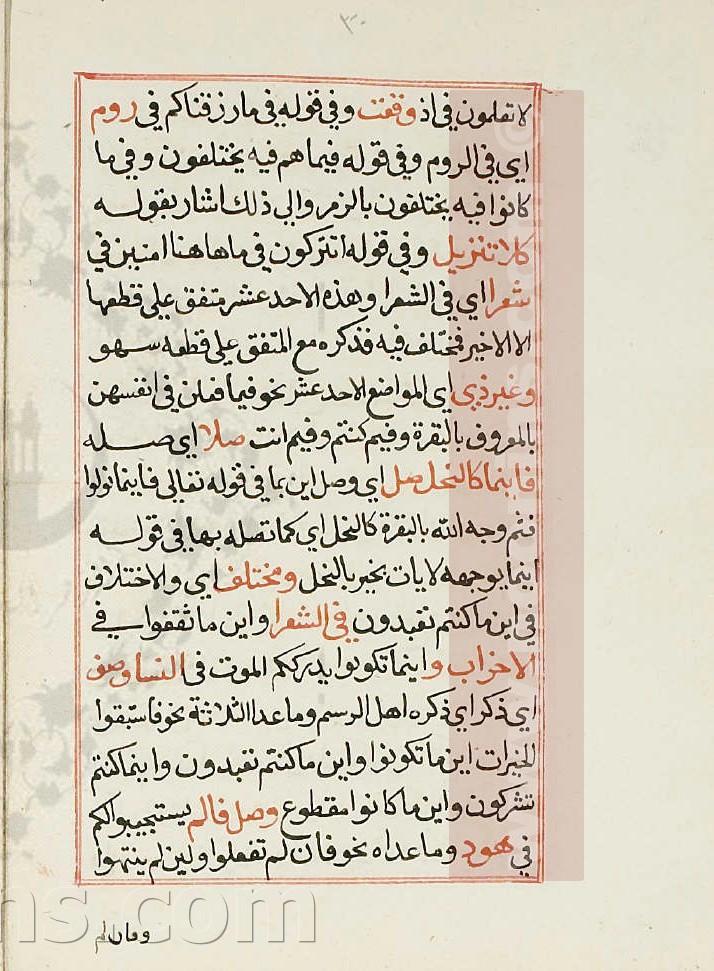 لا تعلمون في اذ وقعت وفي قوله في ما رزقناكم في روم
اي في الروم وفي قوله فيما هم فيه يختلفون وفي ما
كانوا فيه يختلفون بالزمر والي ذلك اشار بقوله
كلا تنزيل وفي قوله اتتركون في ما هاهنا امنين في
شعرا اي في الشعرا وهذه الاحد عشر متفق علي قطعها
الا الاخير فمختلف فيه فذكره مع المتفق علي قطعه سهو
وغير ذي اي المواضع الاحد عشر نحو فيما فعلن في انفسهن
بالمعروف بالبقرة وفيم كنتم وفيم انت صلا اي صله
فاينما كالنحل صل اي وصل اين بما في قوله تعالي فاينما تولوا
فثم وجه الله بالبقرة كالنحل اي كما تصله بها في قوله
اينما يوجهه لا يات بخير بالنحل ومختلف اي والاختلاف
في اين ما كنتم تعبدون في الشعرا واين ما ثقفوا في
الاحزاب واينما تكونوا يدرككم الموت في النسا وصف
اي ذكر اي ذكره اهل الرسم وما عدا الثلاثة نحو فاستبقوا
الخيرات اين ما تكونوا واين ما كنتم تعبدون واينما كنتم
تشركون واين ما كانوا مقطوع وصل فالم يستجيبوا لكم
في هود وما عداه نحو فان لم تفعلوا ولين لم ينتهوا
وفان لم
ns.com